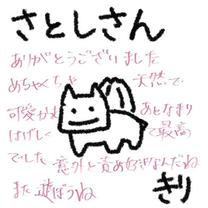 さとしさん
ありがとうございました
めちゃくちゃ 天然で
可愛かた あとなまり
はげしくて最高
でした 意外と責め好きなんだね
また遊ぼうね
きり